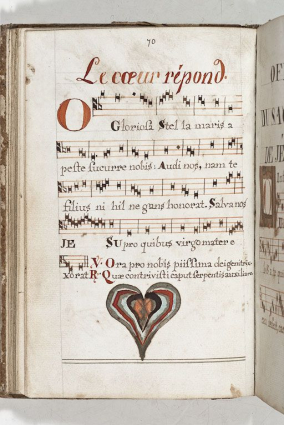 70
Le cœur répond.
O
Gloriosa Stella maris a
peste sucurre nobis: Audi nos, nam te
filius nihil negans honorat. Salva nos
JESU pro quibus virgo mater e
V. Ora pro nobis piissima dei genitrix
xorat R. Quæ contrivisti caput serpentis auxiliare
OF
DU SAC
DE JE